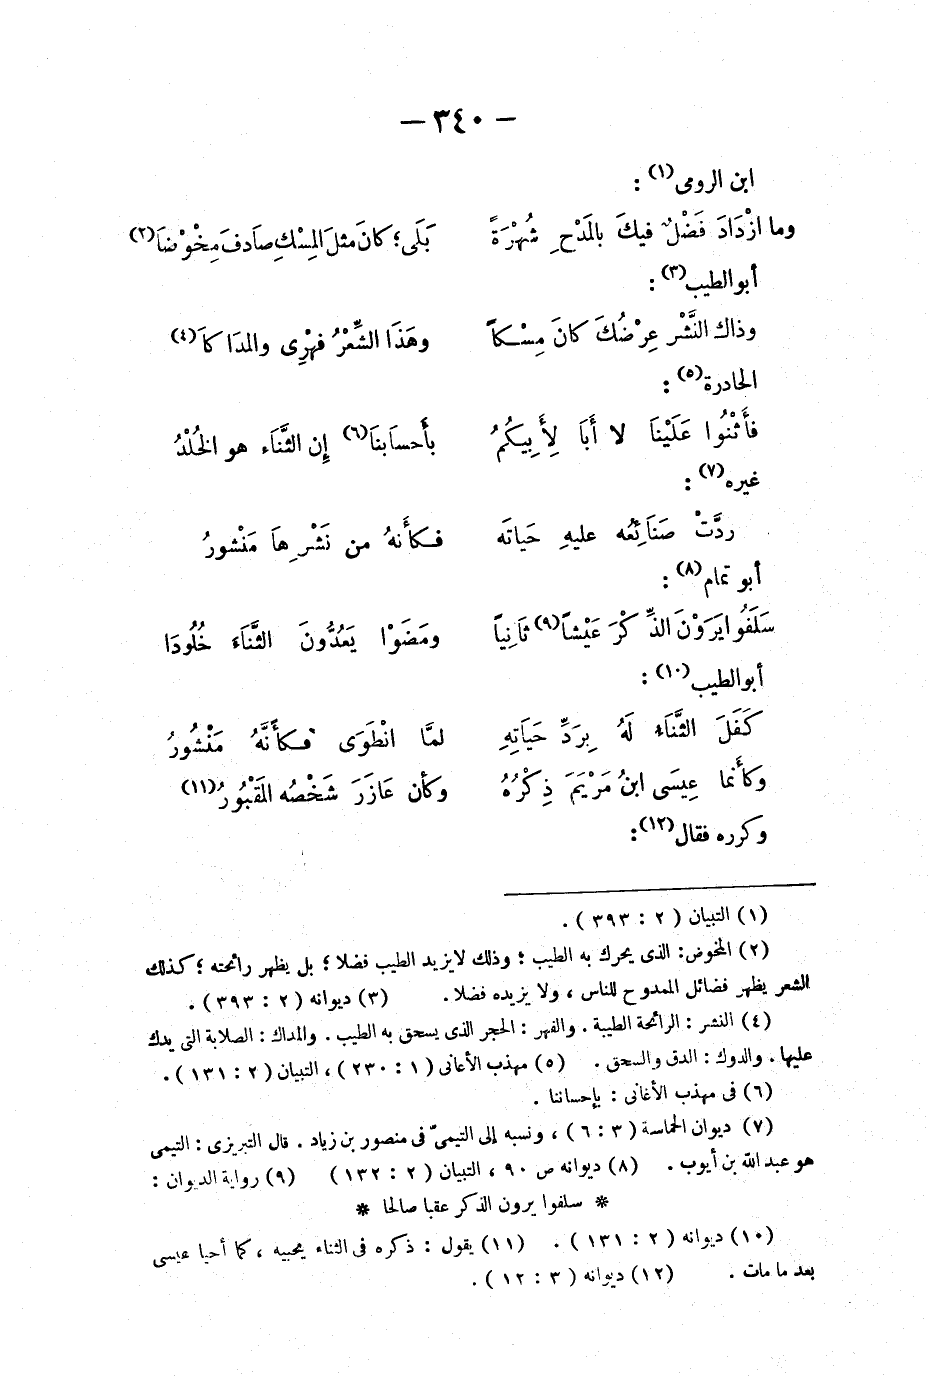 — ٣٤٠ —
ابن الرومى(١) :
وما ازْدَادَ فَضْلٌ فيكَ بالمَدْحِ شُهْرَةً بَلَى؛ كانَ مثلَ المِسْكِ صادفَ مِخْوْضَا(٢)
أبو الطيب(٣) :
وذاك النَّشْر عِرْضُكَ كانَ مِسْكاً وهَذَا الشِّعْرُ فِهْرِى والمدَاكاَ(٤)
الحادرة(٥) :
فأَثْنُوا عَلَيْناَ لا أَبَا لِأَبِيكمُ بأَحسابنَا(٦) إِن الثَّنَاء هو الخُلْدُ
غيره(٧) :
ردَّتْ صَنَائِعُه عليهِ حَياتَه فكأَنهُ من نَشْرِهاَ مَنْشورُ
أبو تمام(٨) :
سَلَفُوا يَرَوْنَ الذِّكْرَ عَيْشاً(٩) ثَانِياً ومَضَوْا يَعُدُّونَ الثَّنَاءَ خُلُودَا
أبو الطيب(١٠) :
كَفَلَ الثَّنَاءُ لَهُ بِرَدِّ حَيَاتِهِ لمَّا انْطَوَى فكأَنَّهُ مَنْشُورُ
وكأَنما عِيسَى ابنُ مَرْيَمَ ذِكْرُهُ وكأن عَازَرَ شَخْصُه المَقْبُورُ(١١)
وكرره فقال(١٢) :
(١) التبيان ( ٢ : ٣٩٣ ) .
(٢) المخوض: الذى يحرك به الطيب ؛ وذلك لا يزيد الطيب فضلا ؛ بل يظهر رائحته ؛ كذلك
الشعر يظهر فضائل الممدوح للناس ، ولا يزيده فضلا . (٣) ديوانه ( ٢ : ٣٩٣ ) .
(٤) النشر : الرائحة الطيبة . والفهر : الحجر الذى يسحق به الطيب . والمداك : الصلابة التى يدك
عليها . والدوك : الدق والسحق . (٥) مهذب الأغانى ( ١ : ٢٣٠ ) ، التبيان ( ٢ : ١٣١ ) .
(٦) فى مهذب الأغانى : بإحساننا .
(٧) ديوان الحماسة ( ٣ : ٦ ) ، ونسبه إلى التيمىّ فى منصور بن زياد . قال التبريزى : التيمى
هو عبد الله بن أيوب . (٨) ديوانه ص ٩٠ ، التبيان ( ٢ : ١٣٢ ) (٩) رواية الديوان :
* سلفوا يرون الذكر عقبا صالحا *
(١٠) ديوانه ( ٢ : ١٣١ ) . (١١) يقول : ذكره فى الثناء يحييه ، كما أحيا عيسى
بعد ما مات . (١٢) ديوانه ( ٣ : ١٢ ) .